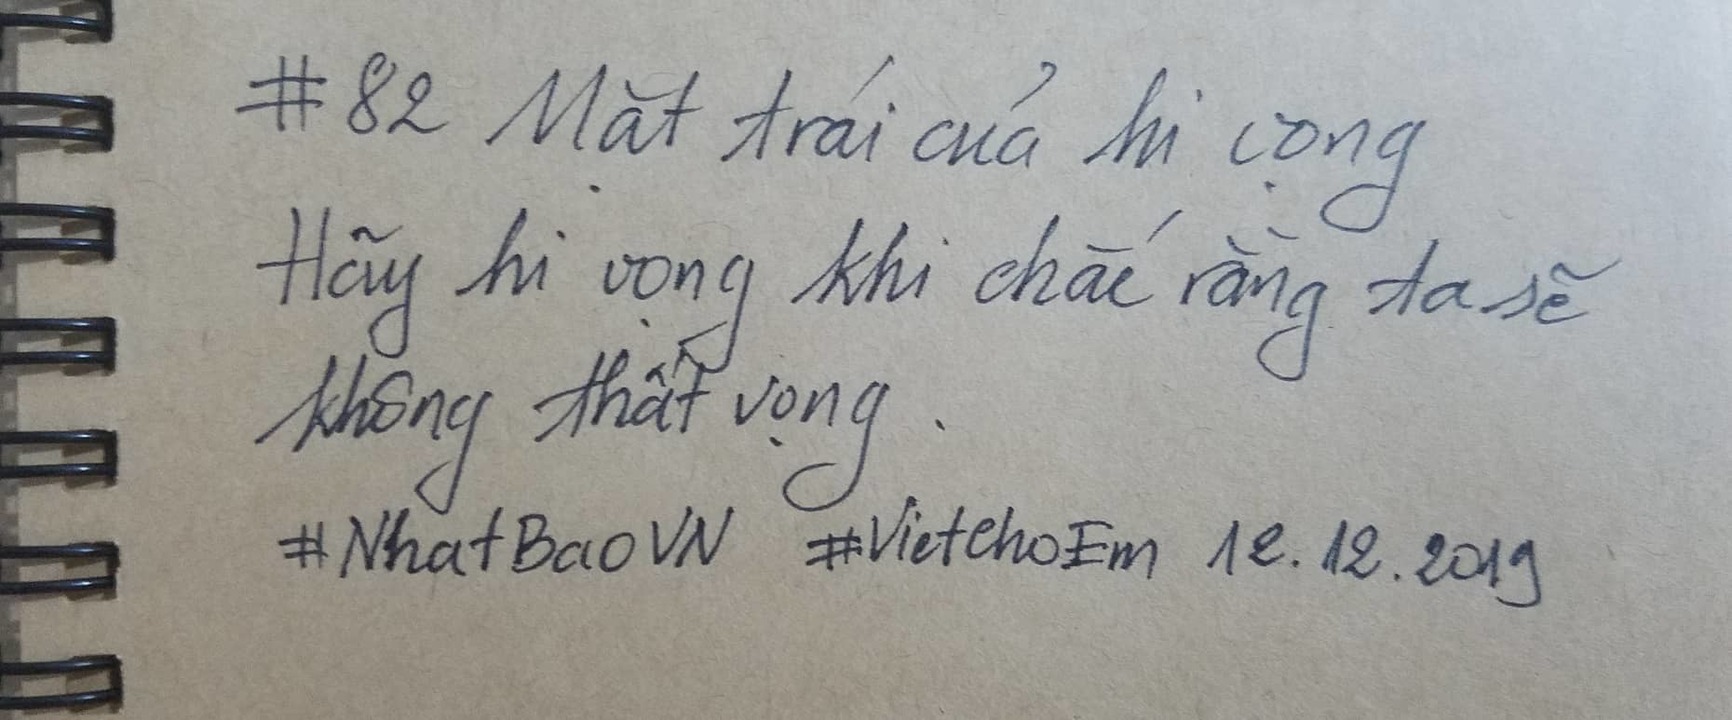 #82 Mặt trái của hi vọng
Hãy hi vọng khi chắc rằng ta sẽ
không thất vọng.
#NhatBaoVN #VietchoEm 12.12.2019